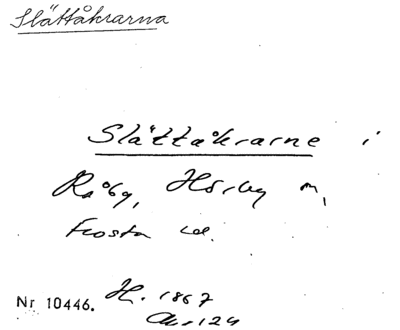 Slättåkrarna
Slättåkrarne i
Råby, Hörby m,
Frosta hd.
Nr 10446. H. 1867
Akt 124